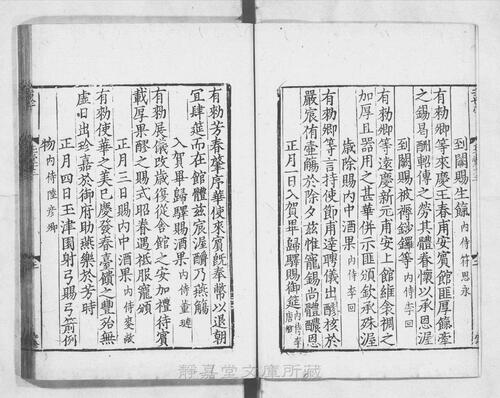 到闕賜生餼 内侍符思永
有勑卿等來慶王春甫安賓館匪厚餼牽
之錫曷酬軺傳之勞其體眷懷以承恩渥
到闕賜被褥鈔鑼等 内侍李回
有勑卿等遠慶新元甫安上館維衾裯之
加厚且器用之甚華併示匪頒欽承殊渥
歲除賜内中酒果 内侍李回
有勑卿等言持使節甫達聘儀出醪核於
嚴宸侑壷觴於除夕兹惟寵錫尚體醲恩
正月一日入賀畢歸驛賜御筵
有勑芳春肇序華使來賓旣奉幣以退朝
宜肆筵而在館體兹宸渥醻乃燕觴
入賀畢歸驛賜酒果 内侍董璉
有勑展儀改歲復從舍館之安加禮待賓
載厚果醪之賜式昭眷遇祗服寵頒
正月三日賜内中酒果
有勑使華之美已慶發春臺饋之豐殆無
虚日出珍嘉於御府助燕樂於芳時
正月四日玉津園射弓賜弓箭例
物 内侍陸彦卿
靜嘉堂文庫所藏